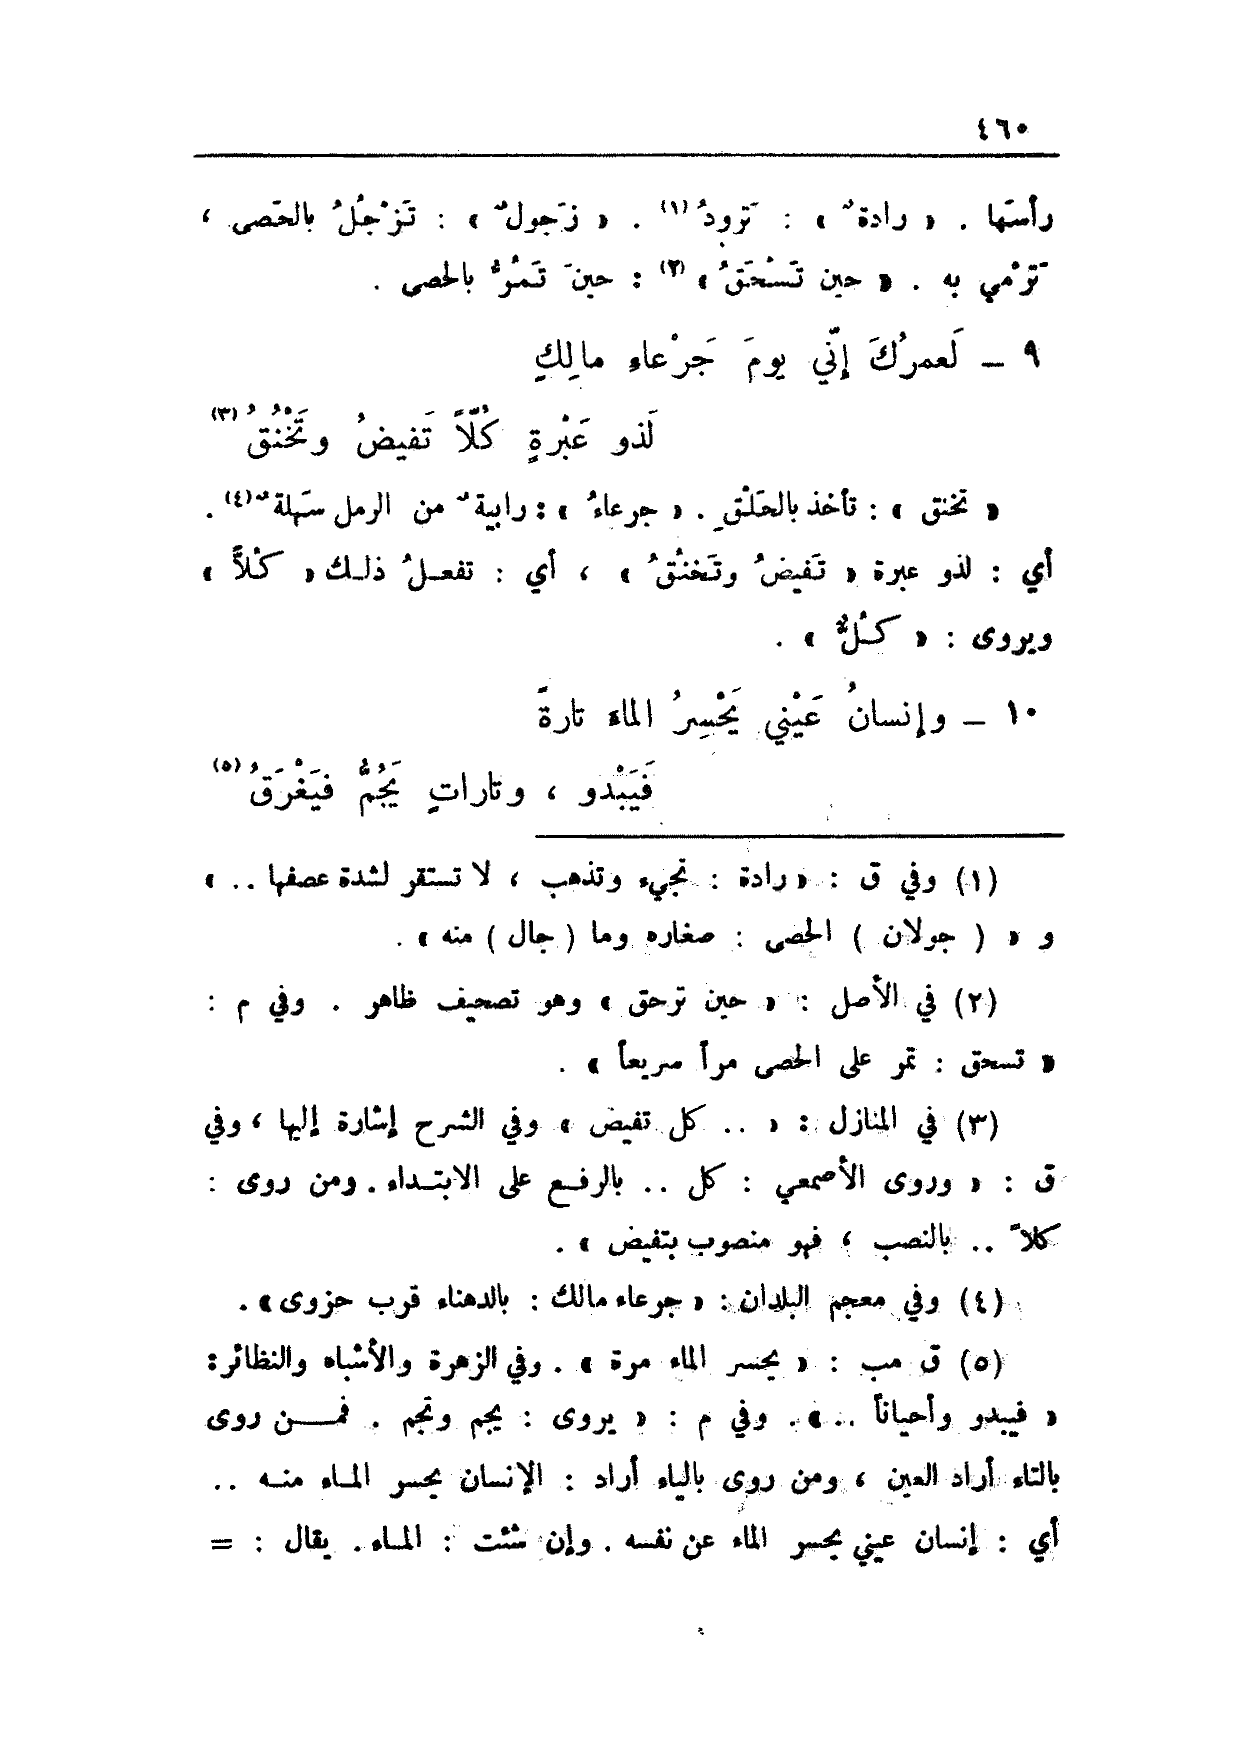 ٤٦٠
رأسَها . « رادةٌ » : تَرودُ (١) . « زَجولٌ » : تَزْجُلُ بالحَصى ،
تَرْمي به . « حين تَسْحَقُ » (٢) : حينَ تَمُرُّ بالحصى .
٩ – لَعمرُكَ إنّي يومَ جَرْعاءِ مالِكٍ
لَذو عَبْرةٍ كُلّاً تَفيضُ وتَخْنُقُ (٣)
« تخنق » : تأخذ بالحَلْقِ . « جرعاءُ » : رابيةٌ من الرمل سَهلةٌ (٤) .
أي : لذو عبرة « تَفيضُ وتَخنُقُ » ، أي : تفعلُ ذلك « كُلاًّ »
ويروى : « كُلٌّ » .
١٠ – وإنسانُ عَيْني يَحْسِرُ الماءَ تارةً
فَيَبْدو ، وتاراتٍ يَجُمُّ فيَغْرَقُ (٥)
(١) وفي ق : « رادة : تجيء وتذهب ، لا تستقر لشدة عصفها .. »
و « ( جولان ) الحصى : صغاره وما ( جال ) منه » .
(٢) في الأصل : « حين ترحق » وهو تصحيف ظاهر . وفي م :
« تسحق : تمر على الحصى مراً سريعاً » .
(٣) في المنازل : « .. كل تفيض » وفي الشرح إشارة إليها ، وفي
ق : « وروى الأصمعي : كل .. بالرفع على الابتداء . ومن روى :
كلاً .. بالنصب ، فهو منصوب بتفيض » .
(٤) وفي معجم البلدان : « جرعاء مالك : بالدهناء قرب حزوى » .
(٥) ق مب : « يحسر الماء مرة » . وفي الزهرة والأشباه والنظائر :
« فيبدو وأحياناً .. » . وفي م : « يروى : يجم وتجم . فمن روى
بالتاء أراد العين ، ومن روى بالياء أراد : الإنسان يحسر الماء منه ..
أي : إنسان عيني يحسر الماء عن نفسه . وإن شئت : الماء . يقال : =